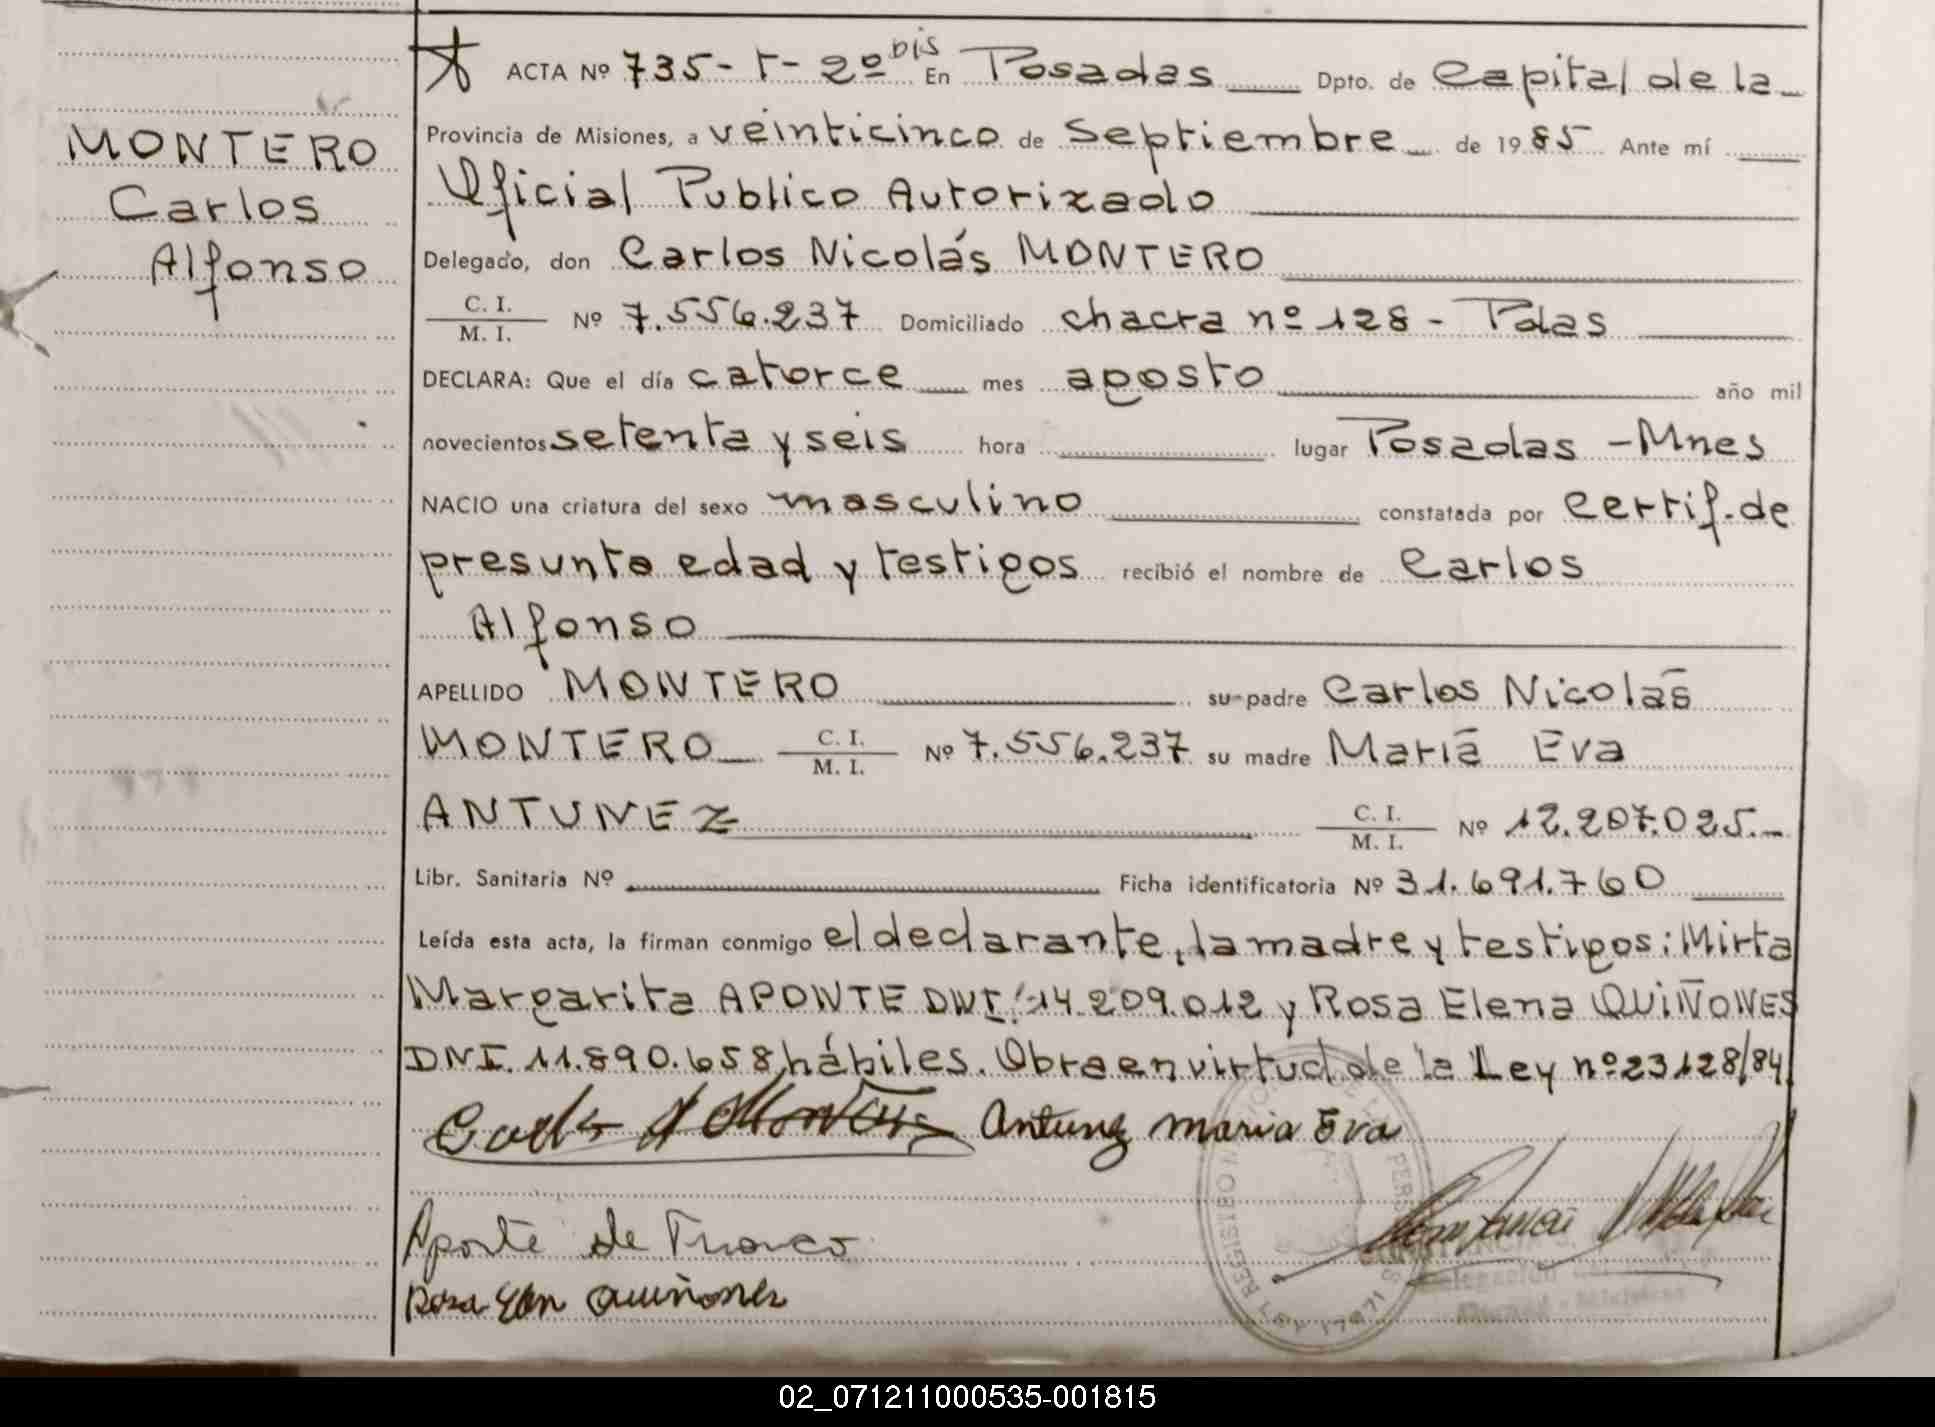 MONTERO
Carlos
Alfonso
ACTA Nº 735 - T - 2º bis En Posadas Dpto. de Capital de la
Provincia de Misiones, a veinticinco de Septiembre de 1985 Ante mí
Oficial Publico Autorizado
Delegado, don Carlos Nicolás MONTERO
C. I.
M. I. Nº 7.556.237 Domiciliado chacra nº 128 - Pdas
DECLARA: Que el día catorce mes agosto año mil
novecientos setenta y seis hora lugar Posadas - Mnes
NACIO una criatura del sexo masculino constatada por Certif. de
presunta edad y testigos recibió el nombre de Carlos
Alfonso
APELLIDO MONTERO su padre Carlos Nicolás
MONTERO C. I. M. I. Nº 7.556.237 su madre María Eva
ANTUNEZ C. I. M. I. Nº 12.207.025.-
Libr. Sanitaria Nº Ficha identificatoria Nº 31.691.760
Leída esta acta, la firman conmigo el declarante, la madre y testigos: Mirta
Margarita APONTE DNI. 14.209.012 y Rosa Elena QUIÑONES
DNI. 11.890.658, hábiles. Obra en virtud de la Ley nº 23128/84
Antunez Maria Eva
Aponte de
Rosa Quiñones
02_071211000535-001815